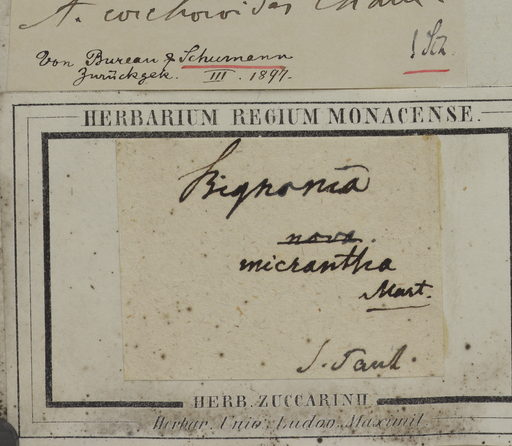 A. corchoroides Cham.
Von Bureau & Schumann
Zurückgek. III. 1897.
! Sch.
HERBARIUM REGIUM MONACENSE.
Bignonia
nova.
micrantha
Mart.
S. Paul.
HERB. ZUCCARINII
Herbar. Univ. Ludov. Maximil.